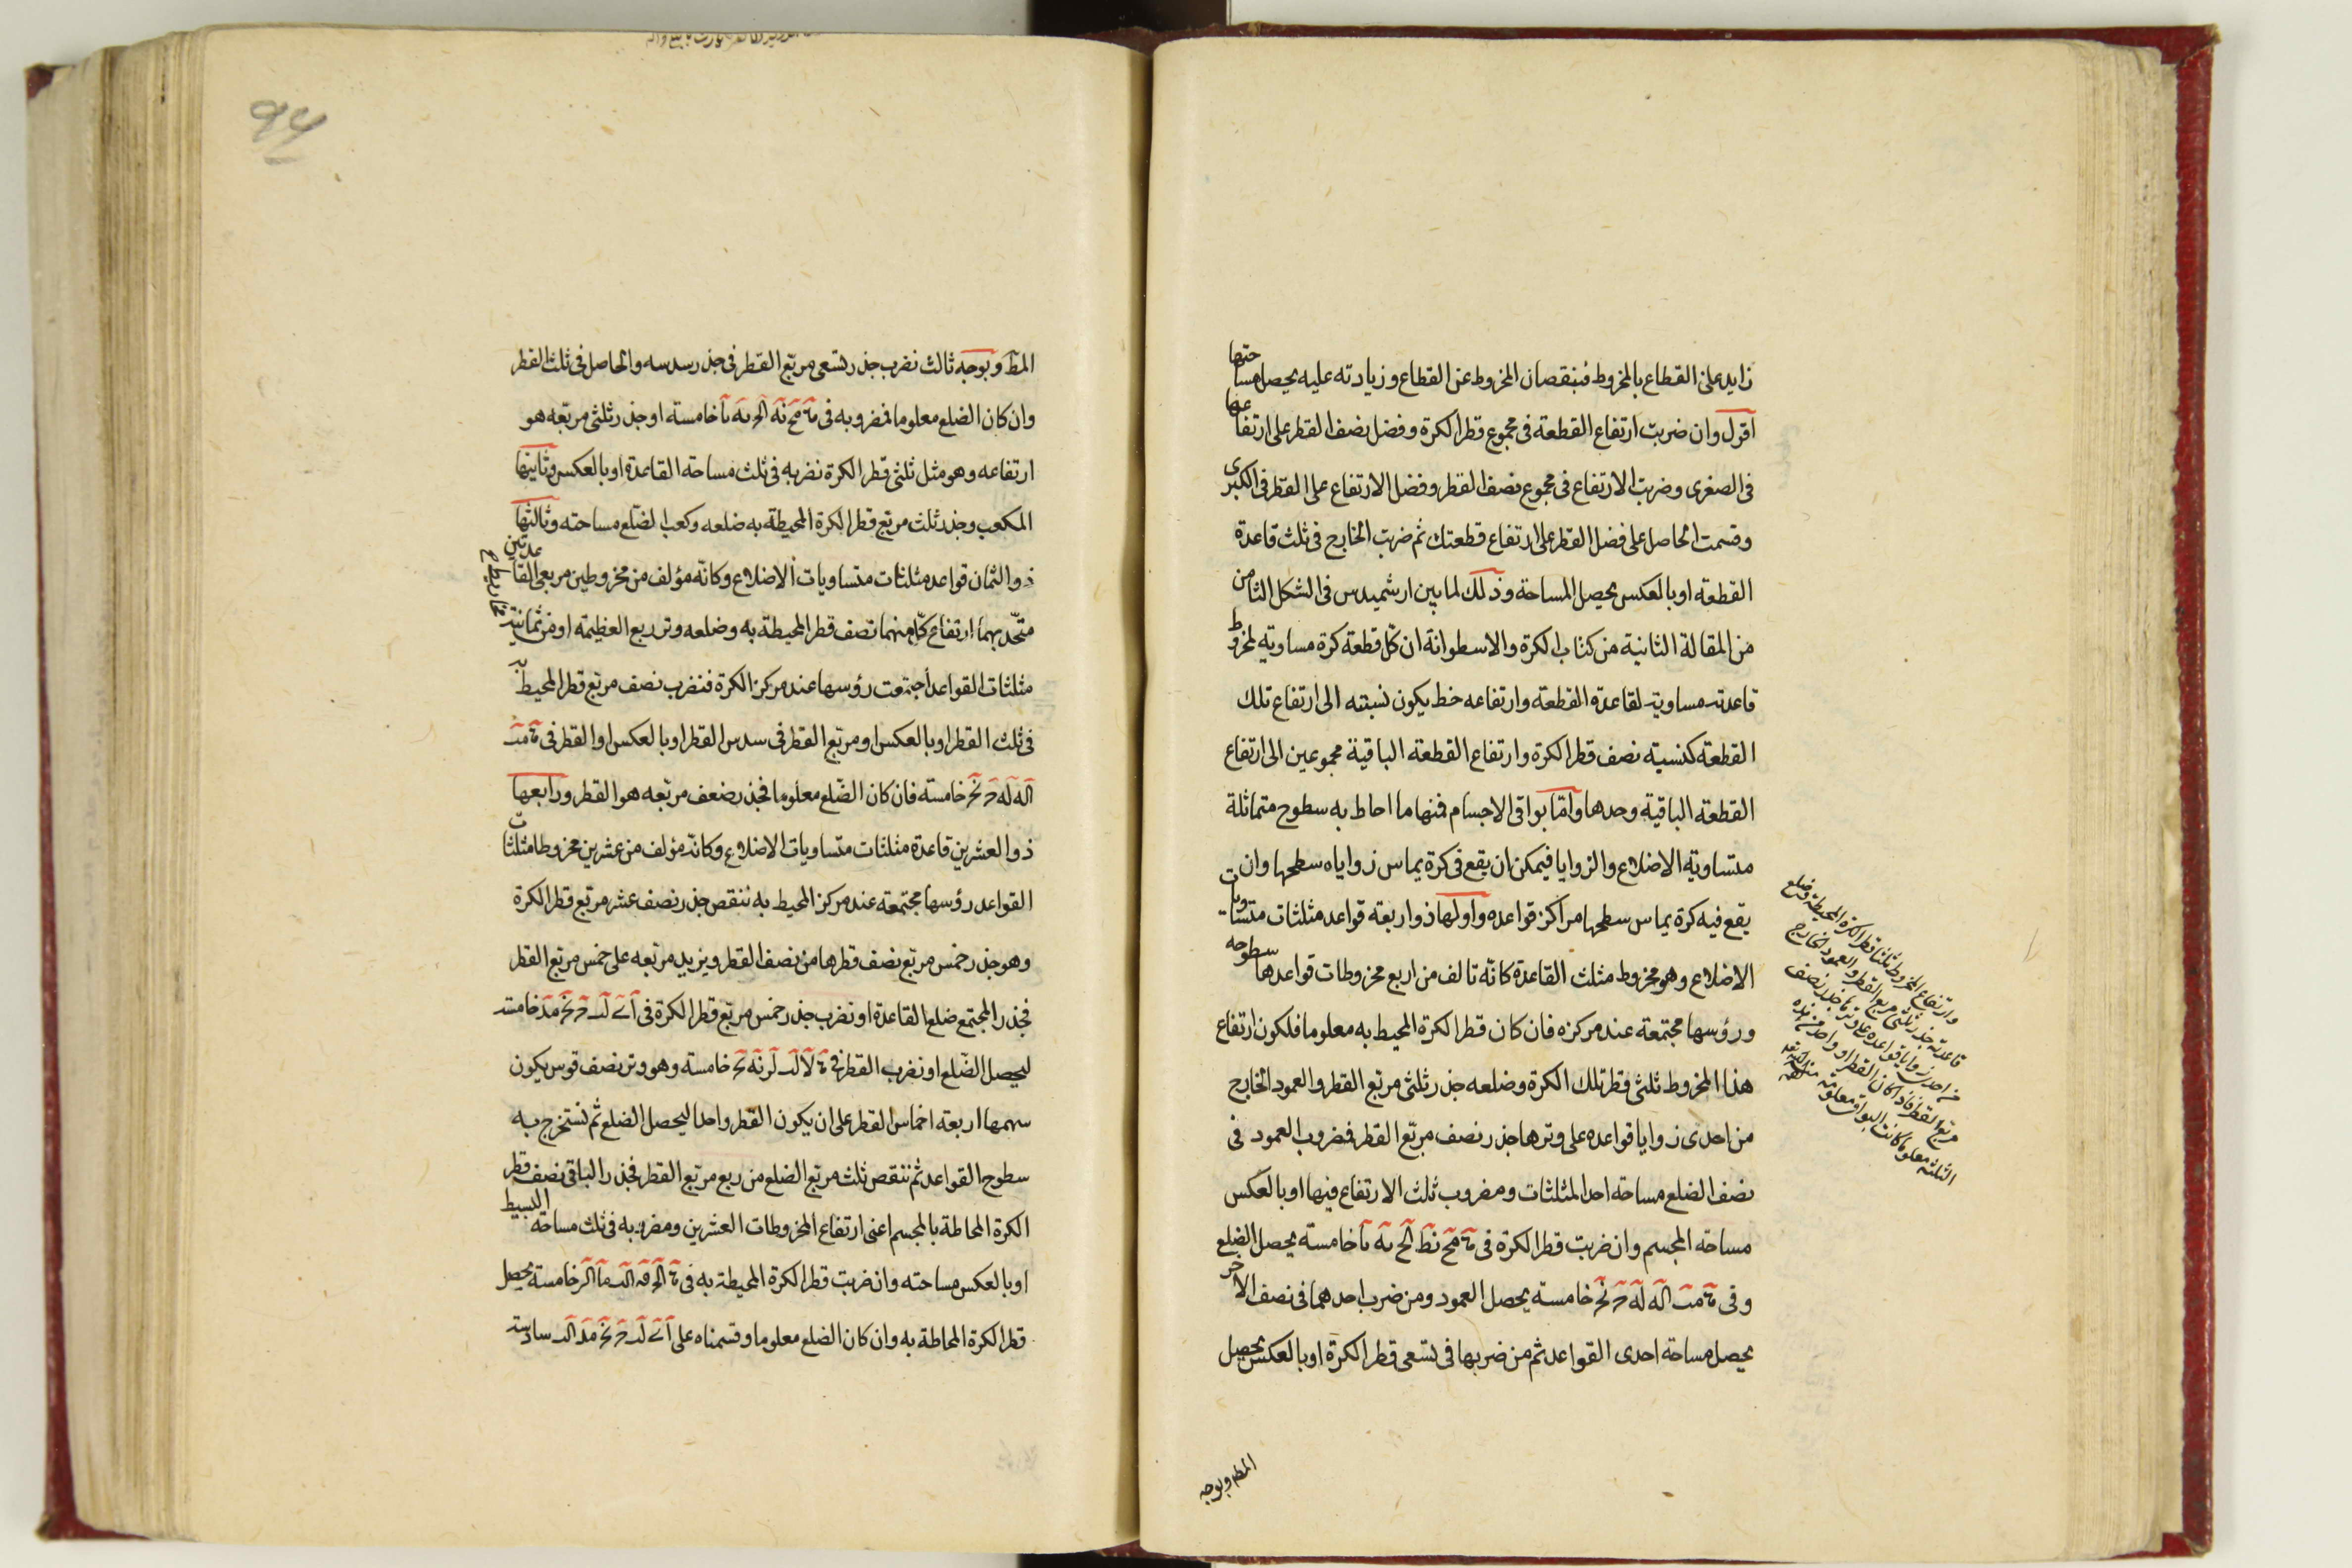 زايد على القطاع بالمخروط فبنقصان المخروط عن القطاع وزيادته عليه يحصل مساحتها
اقول وان ضربت ارتفاع القطعة فى مجموع قطر الكرة وفضل نصف القطر على ارتفاعها
فى الصغرى وضربت الارتفاع فى مجموع نصف القطر وفضل الارتفاع على القطر فى الكبرى
وقسمت الحاصل على فضل القطر على ارتفاع قطعتك ثم ضربت الخارج فى ثلث قاعدة
القطعة او بالعكس يحصل المساحة وذلك لما بين ارشميدس فى الشكل الثامن
من المقالة الثانية من كتاب الكرة والاسطوانة ان كل قطعة كرة مساوية لمخروط
قاعدته مساوية لقاعدة القطعة وارتفاعه خط يكون نسبته الى ارتفاع تلك
القطعة كنسبة نصف قطر الكرة وارتفاع القطعة الباقية مجموعين الى ارتفاع
القطعة الباقية وحدها واما بواقى الاجسام فمنها ما احاط به سطوح متماثلة
متساوية الاضلاع والزوايا فيمكن ان يقع فى كرة يماس زواياه سطحها وان
يقع فيه كرة يماس سطحها مراكز قواعده واولها ذو اربعة قواعد مثلثات متساويات
الاضلاع وهو مخروط مثلث القاعدة كانه تالف من اربع مخروطات قواعدها سطوحه
ورؤسها مجتمعة عند مركزه فان كان قطر الكرة المحيط به معلوما فلكون ارتفاع
هذا المخروط ثلثى قطر تلك الكرة وضلعه جذر ثلثى مربع القطر والعمود الخارج
من احدى زوايا قواعده على وترها جذر نصف مربع القطر فضروب العمود فى
نصف الضلع مساحة احد المثلثات ومضروب ثلث الارتفاع فيها او بالعكس
مساحة المجسم وان ضربت قطر الكرة فى مح نط الح نه نا خامسة يحصل الضلع
وفى مت اله له ح نح خامسة يحصل العمود ومن ضرب احدهما فى نصف الاخر
يحصل مساحة احدى القواعد ثم من ضربها فى تسعى قطر الكرة او بالعكس يحصل
المط وبوجه
وارتفاع المخروط ثلثا قطر الكرة المحيطة وضلع
قاعدته جذر ثلثى مربع القطر والعمود الخارج
من احد زوايا قواعده على وترها جذر نصف
مربع القطر فاذا كان القطر او واحد من هذه
الثلثة معلوما كانت البواقى معلومة
المط وبوجه ثالث نضرب جذر تسعى مربع القطر فى جذر سدسه والحاصل فى ثلث القطر
وان كان الضلع معلوما فمضروبه فى مح نه الح نه نا خامسة او جذر ثلثى مربعه هو
ارتفاعه وهو مثل ثلثى قطر الكرة نضربه فى ثلث مساحة القاعدة او بالعكس وثانيها
المكعب وجذر ثلث مربع قطر الكرة المحيطة به ضلعه وكعب الضلع مساحته وثالثها
ذو الثمان قواعد مثلثات متساويات الاضلاع وكانه مؤلف من مخروطين مربعى القاعدتين
متحد بهما ارتفاع كل منهما نصف قطر المحيطة به وضلعه وتر ربع العظيمة او من ثمانية
مثلثات القواعد اجتمعت رؤسها عند مركز الكرة فنضرب نصف مربع قطر المحيط به
فى ثلث القطر او بالعكس او مربع القطر فى سدس القطر او بالعكس او القطر فى مت
اله له ح نح خامسة فان كان الضلع معلوما فجذر ضعف مربعه هو القطر ورابعها
ذو العشرين قاعدة مثلثات متساويات الاضلاع وكانه مؤلف من عشرين مخروطا مثلثات
القواعد رؤسها مجتمعة عند مركز المحيط به ننقص جذر نصف عشر مربع قطر الكرة
وهو جذر خمس مربع نصف قطرها من نصف القطر ويزيد مربعه على خمس مربع القطر
فجذر المجتمع ضلع القاعدة او نضرب جذر خمس مربع قطر الكرة فى خامسة
ليحصل الضلع او نضرب القطر فى خامسة وهو وتر نصف قوس يكون
سهمها اربعة اخماس القطر على ان يكون القطر واحدا ليحصل الضلع ثم نستخرج به
سطوح القواعد ثم ننقص ثلث مربع الضلع من ربع مربع القطر فجذر الباقى نصف قطر
الكرة المحاطة بالمجسم اعنى ارتفاع المخروطات العشرين ومضروبه فى ثلث مساحة البسيط
او بالعكس مساحته وان ضربت قطر الكرة المحيطة به فى خامسة يحصل
قطر الكرة المحاطة به وان كان الضلع معلوما وقسمناه على سادسة